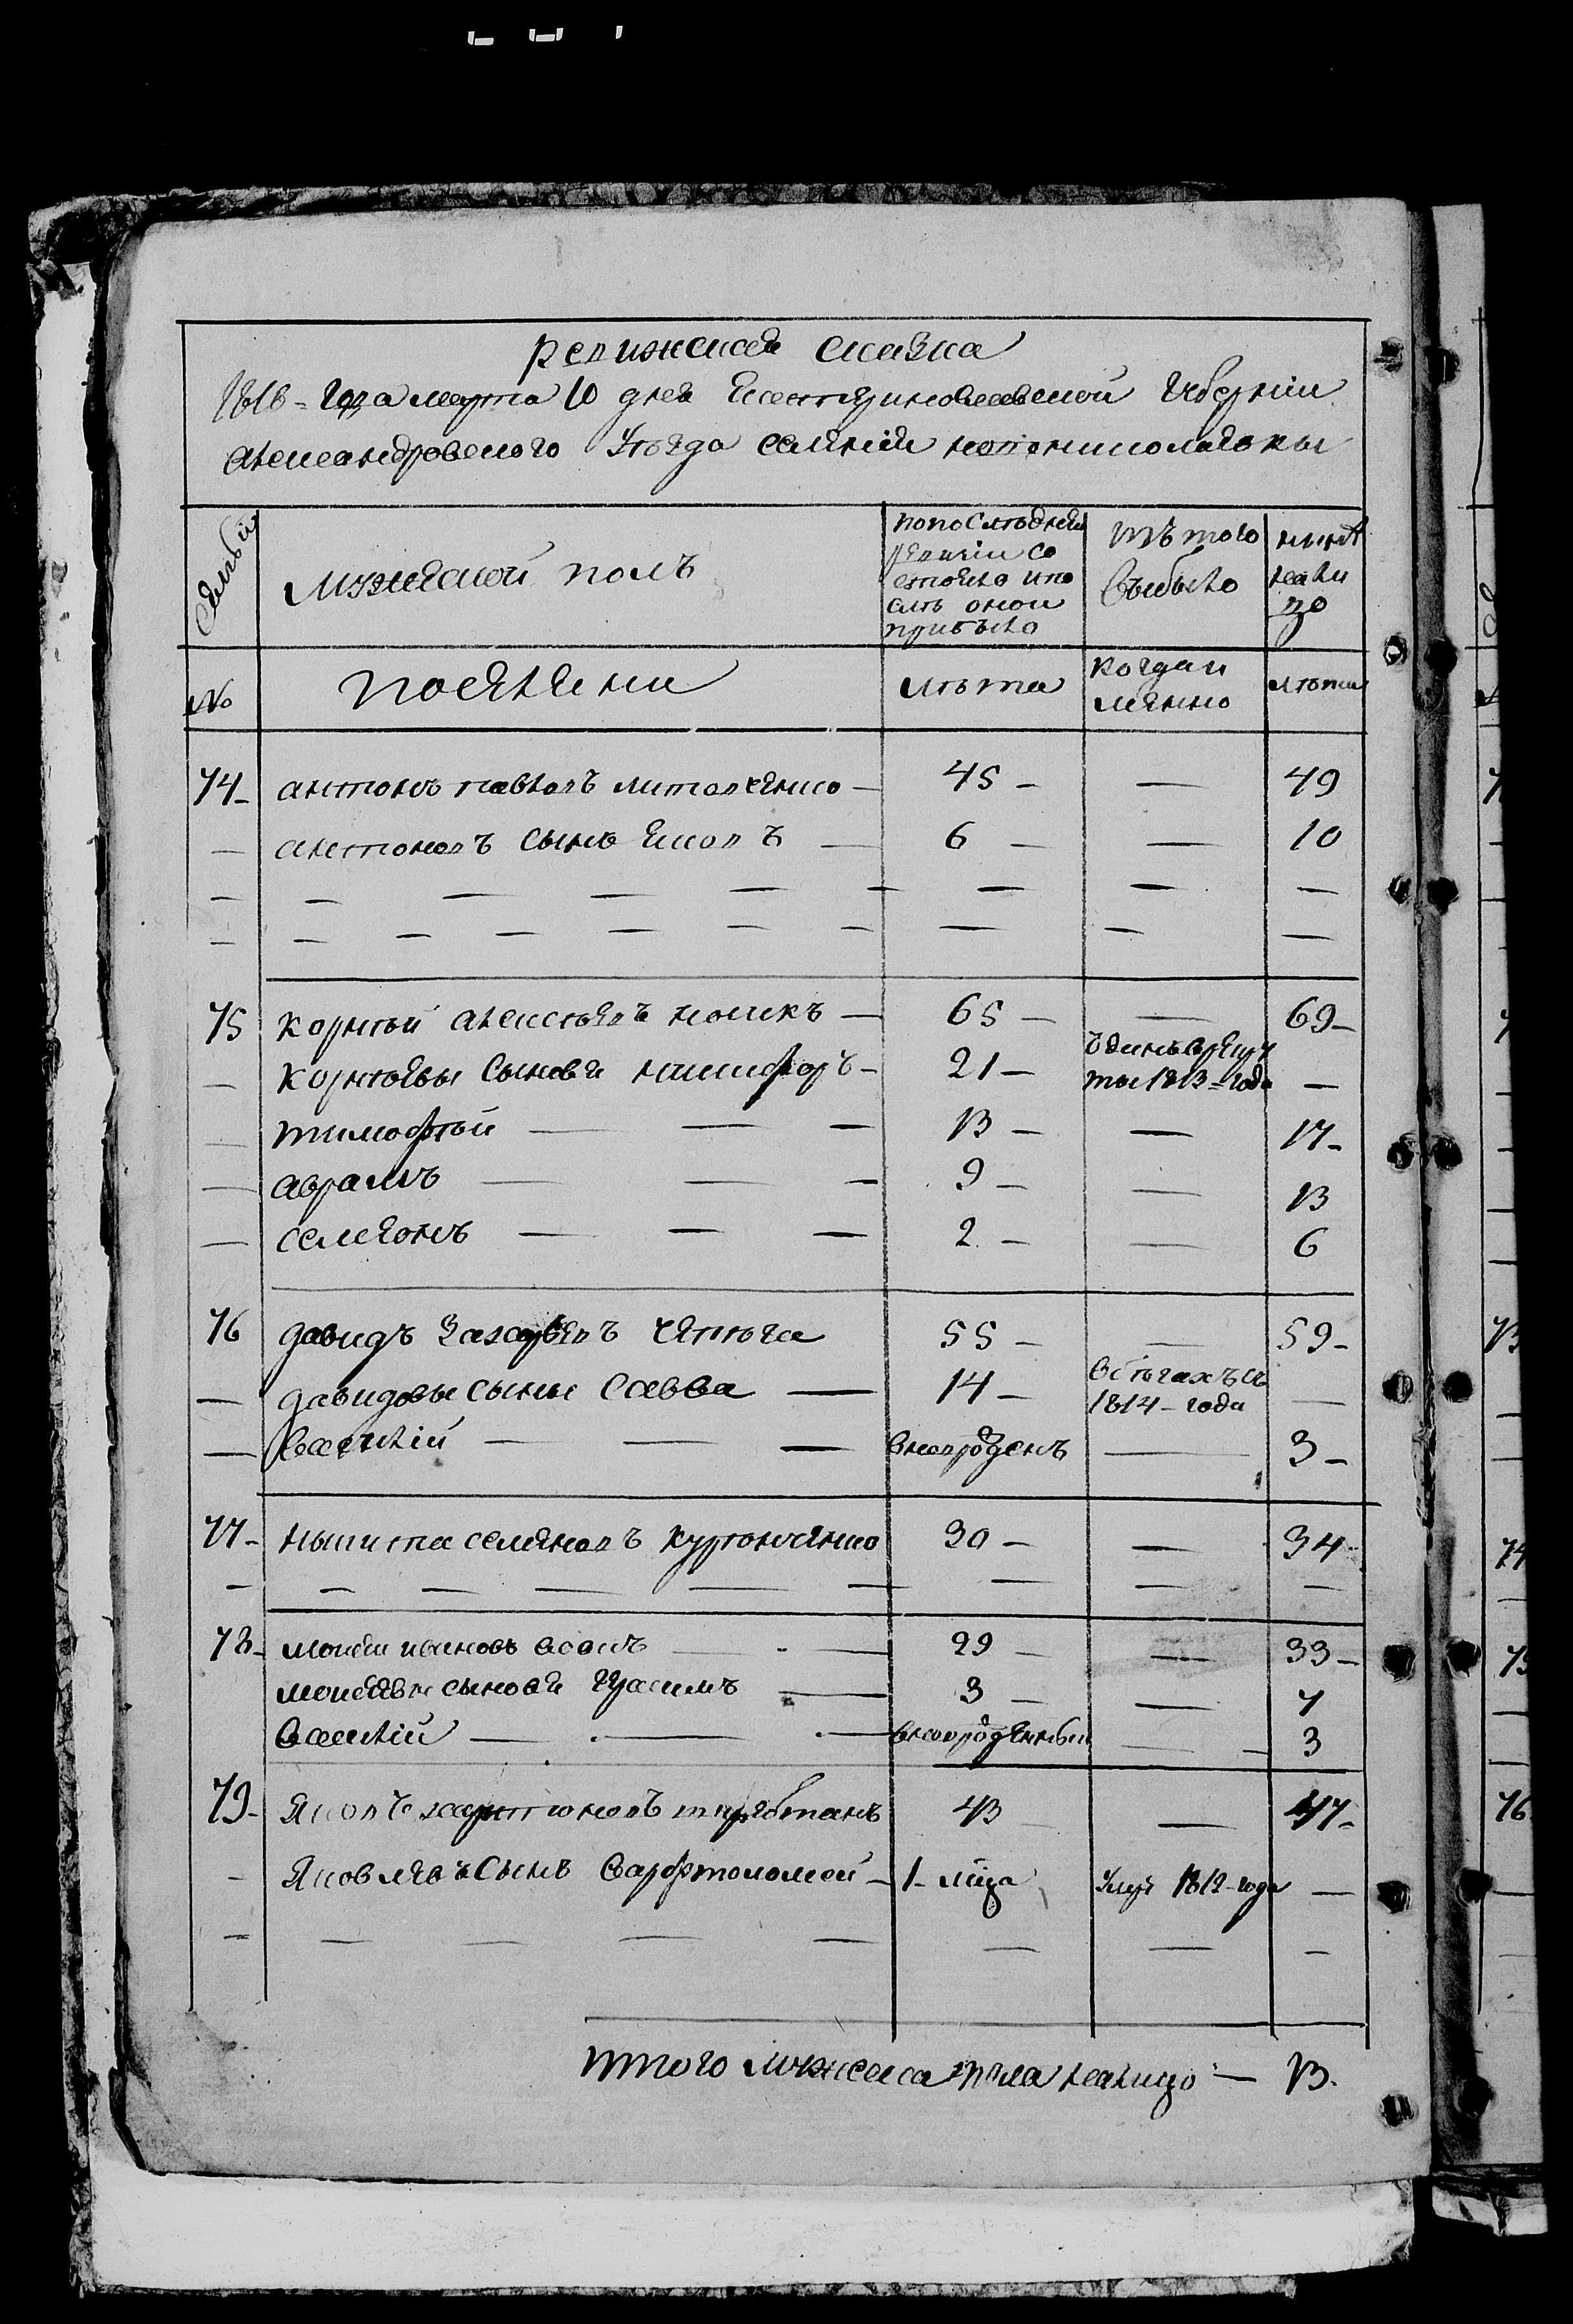 Ревижская сказка
1816 = года марта 10 дня Екатериновславской Губернии
Александровского Уезда селения новониколаевки
Семьи
Мужеской полъ
попоследней ревизии состояло ипосле оной прибыло
изъ того Выбыло
ныне налицо
№
поселяни
лета
когда именно
лета
74 - антонъ павловъ литовченко - 45 - — 49
— антоновъ сынъ яковъ — 6 — — 10
75 корней алексеевъ — 65 — — 69 -
— корнеевы сыновя никифоръ - 21 — 1813 = года —
— тимофей — — — 13 — — 17 -
— аврамъ — — — 9 — — 13
— семенъ — — — 2 — — 6
76 давидъ захарьевъ 55 — — 59 -
— давидовы сыны савва — 14 — в бегахъ съ 1814 - года —
— василий — — — вноврожденъ — 3 -
77 - никита семеновъ курочченко 30 — — 34
78 - моисей ивановъ вовкъ — 29 — — 33 -
моисеевы сыновя герасимъ — 3 — — 7
василий — — — вноврожденный — 3
79 - яковъ харитоновъ 43 — — 47 -
— яковлевъ сынъ варфтоломей - 1 - мца умре 1812 - года —
итого мужеска пола налицо — 13.